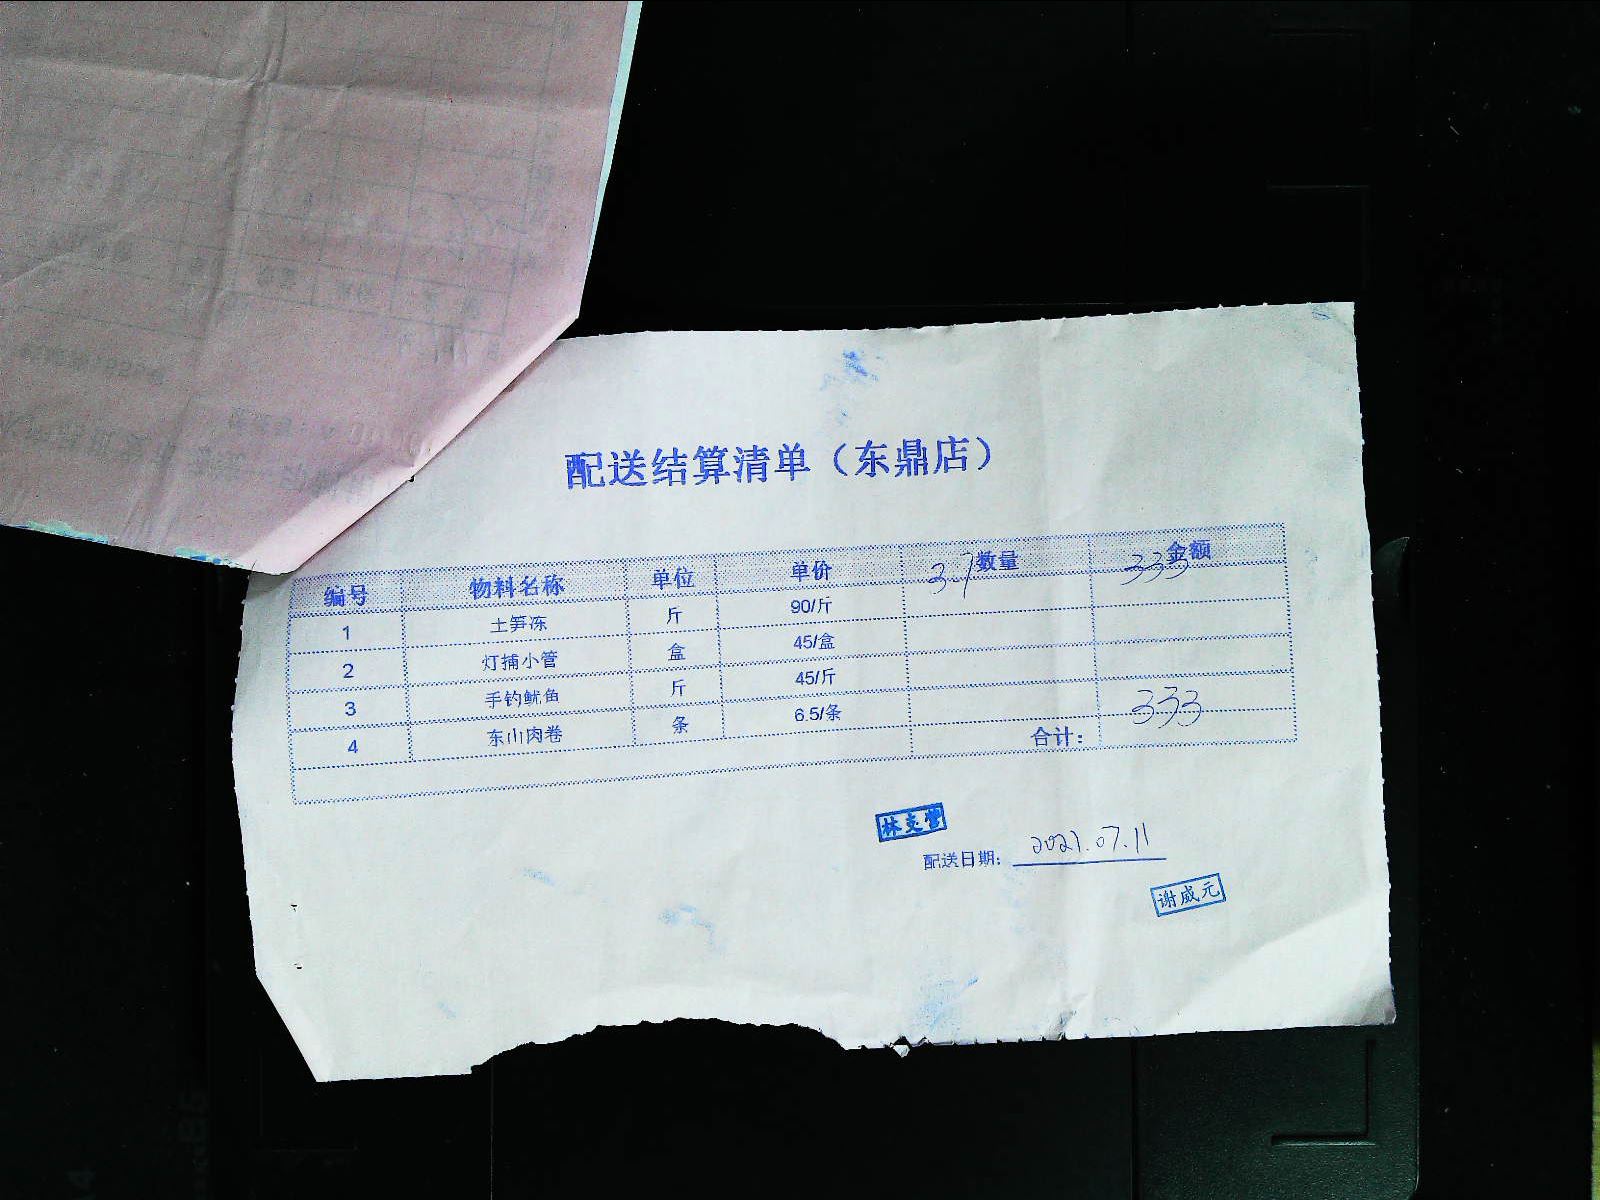 配送结算清单（东鼎店）
编号 物料名称 单位 单价 数量 金额
1 土笋冻 斤 90/斤 3.7 333
2 灯捕小管 盒 45/盒
3 手钓鱿鱼 斤 45/斤
4 东山肉卷 条 6.5/条
合计： 333
配送日期：2021.07.11
谢威元